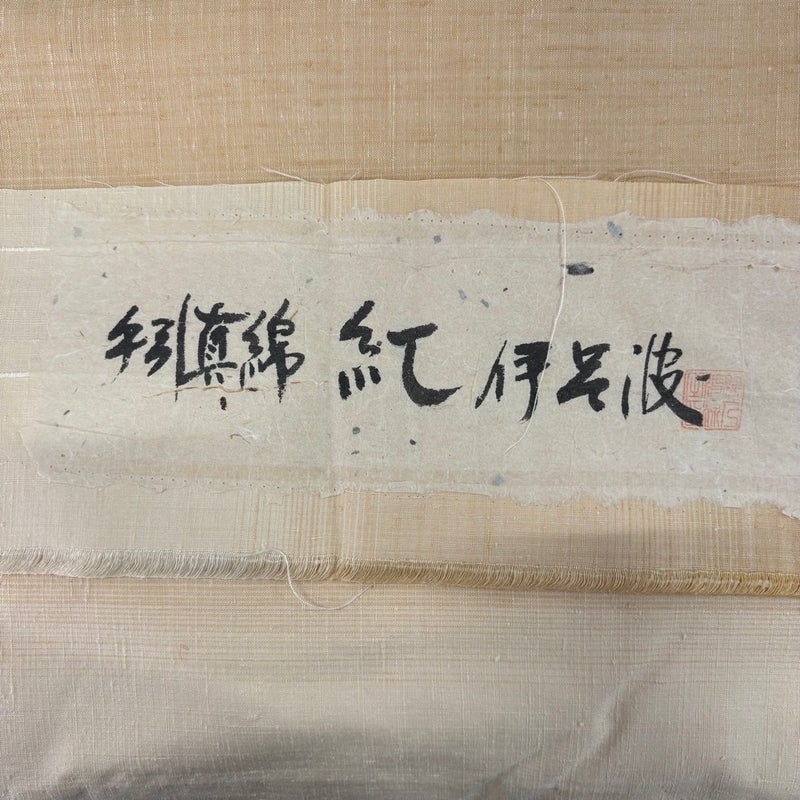 手引真綿 紅 伊呂波